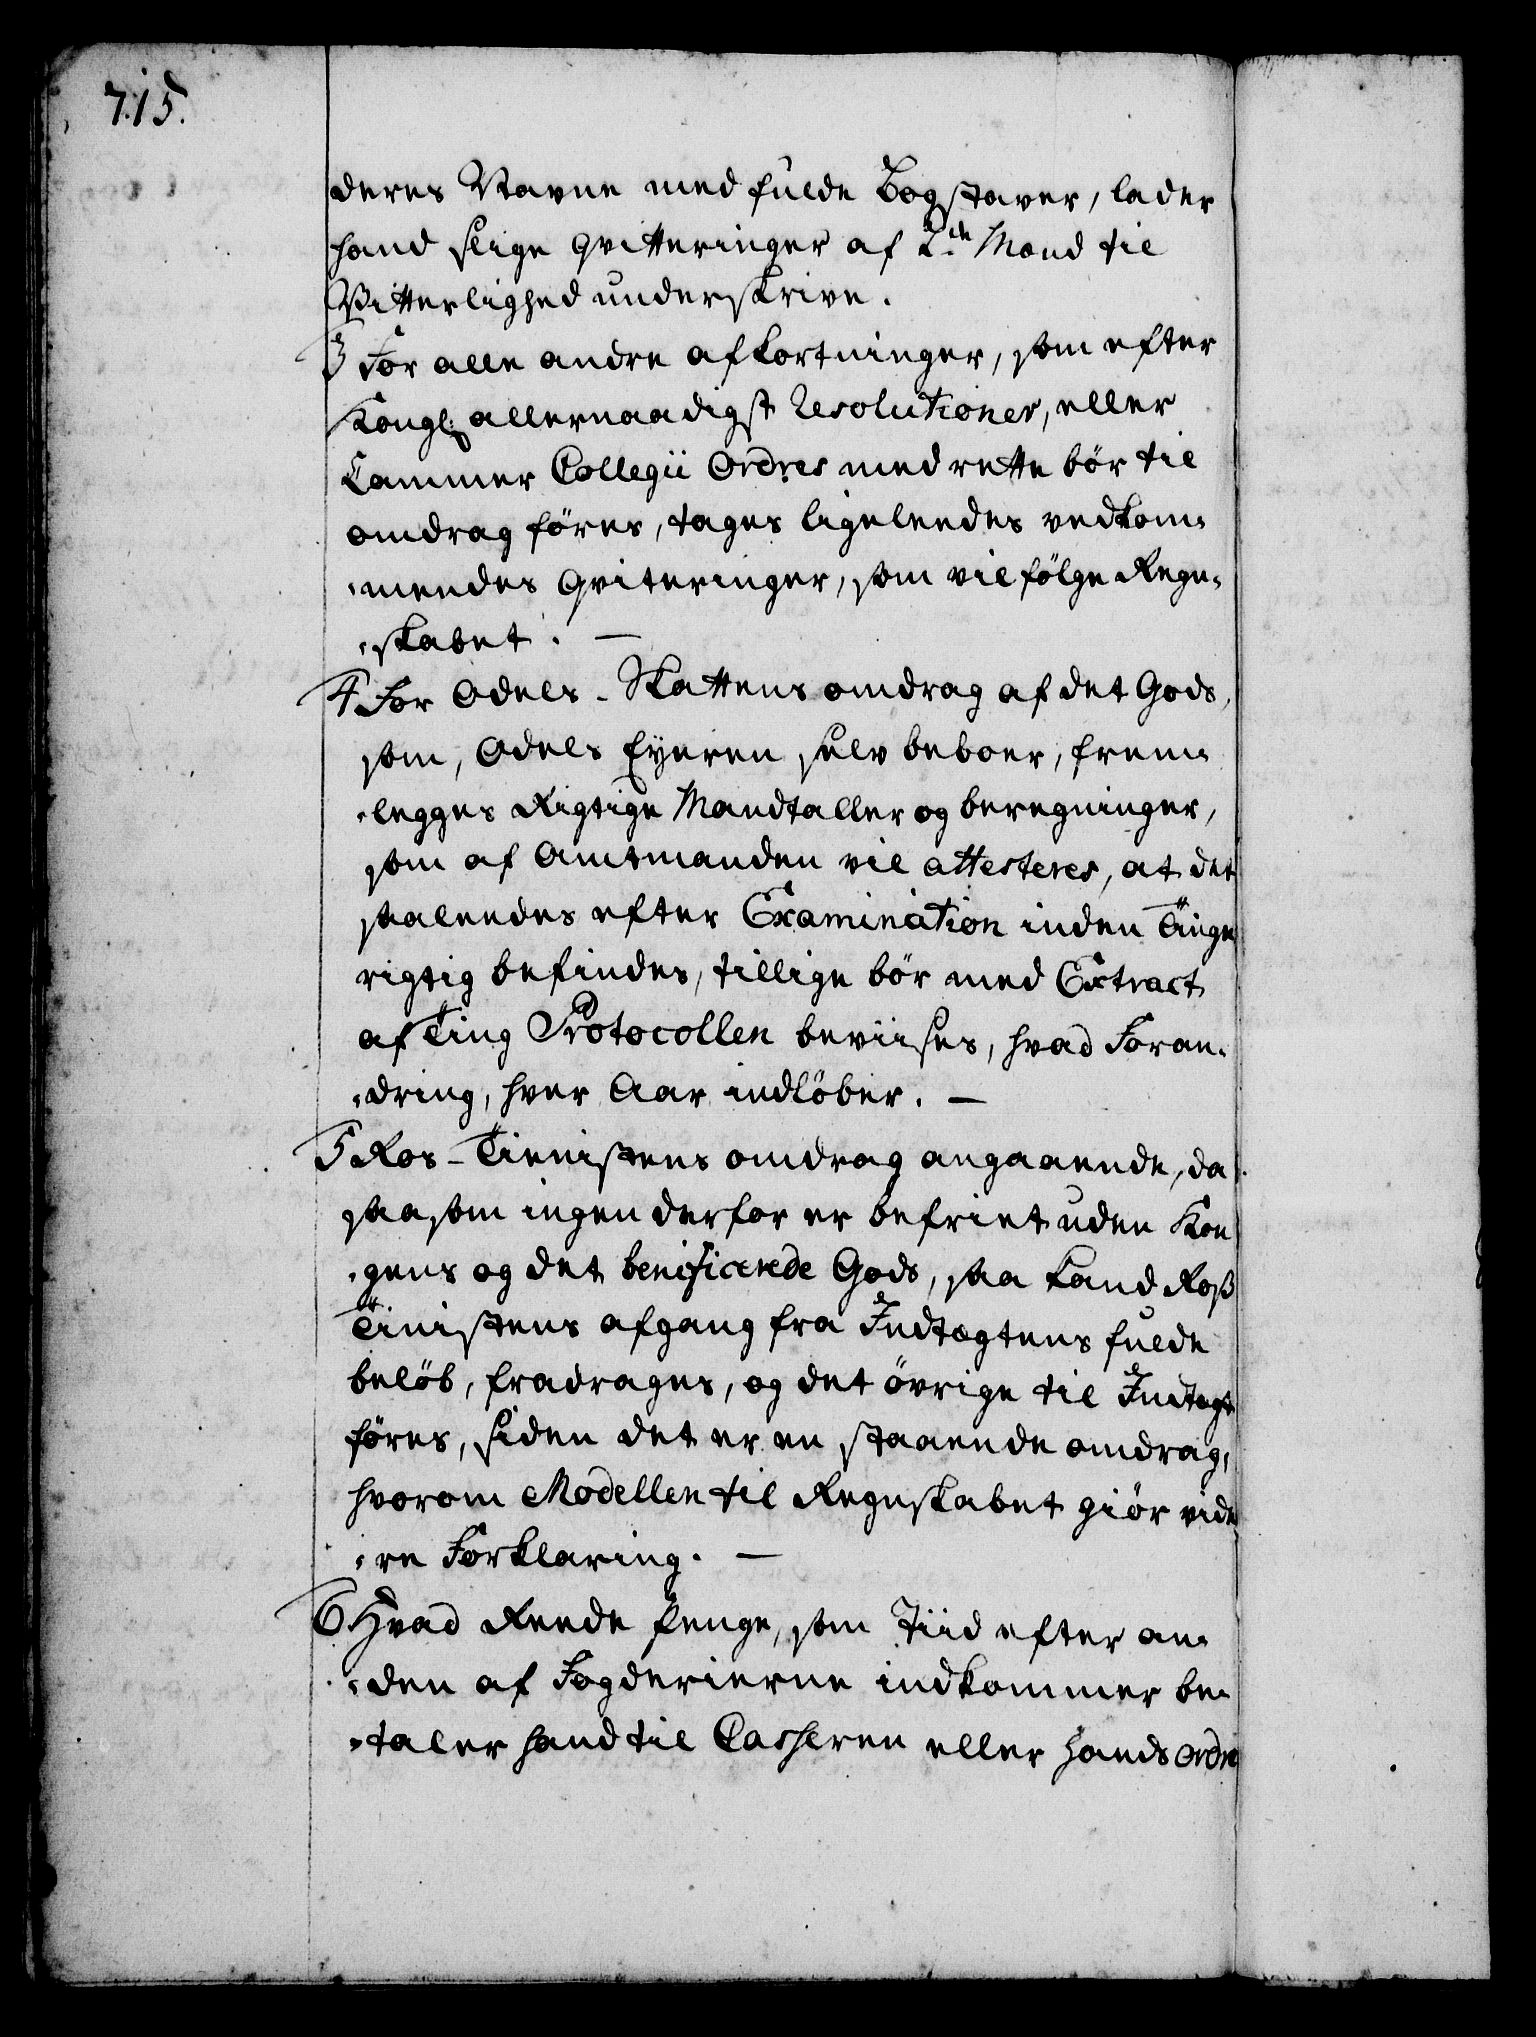 715.
deres Navne med fulde Bogstaver, lader
hand slige qvitteringer af 2de Mand til
Vitterlighed underskrive.
3 For alle andre afkortninger, som efter
Kongl: allernaadigst Resolutioner, eller
Cammer Collegii Ordres med rette bör til
omdrag föres, tages ligeleedes vedkom-
-mendes qviteringer, som vil fölge Regn-
-skabet. —
4 For Odels-Skattens omdrag af det Gods,
som, Odels Eyeren selv beboer, frem-
-legges Rigtige Mandtaller og beregninger,
som af Amtmanden vil attesteres, at det
saaleedes efter Examination inden Tinge
rigtig befindes, tillige bör med Extract
af Ting Protocollen beviises, hvad Foran-
-dring, hver Aar indlöber. —
5 Ros-Tienistens omdrag angaaende, da
saasom ingen derfor er befriet uden Kon
-gens og det benificerede Gods, saa kand Roß
Tienistens afgang fra Indtægtens fulde
belöb, fradrages, og det övrige til Indtægt
föres, siden det er en staaende omdrag,
hvorom Modellen til Regnskabet giör vide
-re Forklaring. —
6 Hvad Reede Penge, som Tiid efter an-
-den af Fogderierne indkommer be-
-taler hand til Casseren eller hands ordre